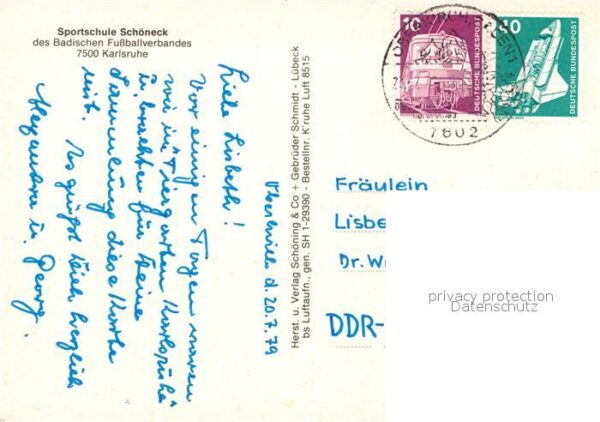 Sportschule Schöneck
des Badischen Fußballverbandes
7500 Karlsruhe
Oberkirch d. 20.7.79
Liebe Lisbeth!
Vor einigen Tagen waren
wir im "Tiergarten Karlsruhe"
u. brachten für Deine
Sammlung diese Karte
mit.
Es grüßt Dich herzlich
Alexandra u. Georg.
Herst. u. Verlag Schöning & Co + Gebrüder Schmidt · Lübeck
bs Luftaufn., gen. SH 1-29390 - Bestellnr. K'ruhe Luft 8515
10
DEUTSCHE BUNDESPOST
40
DEUTSCHE BUNDESPOST
7602
Fräulein
Lisbe
Dr. W
DDR-
privacy protection
Datenschutz